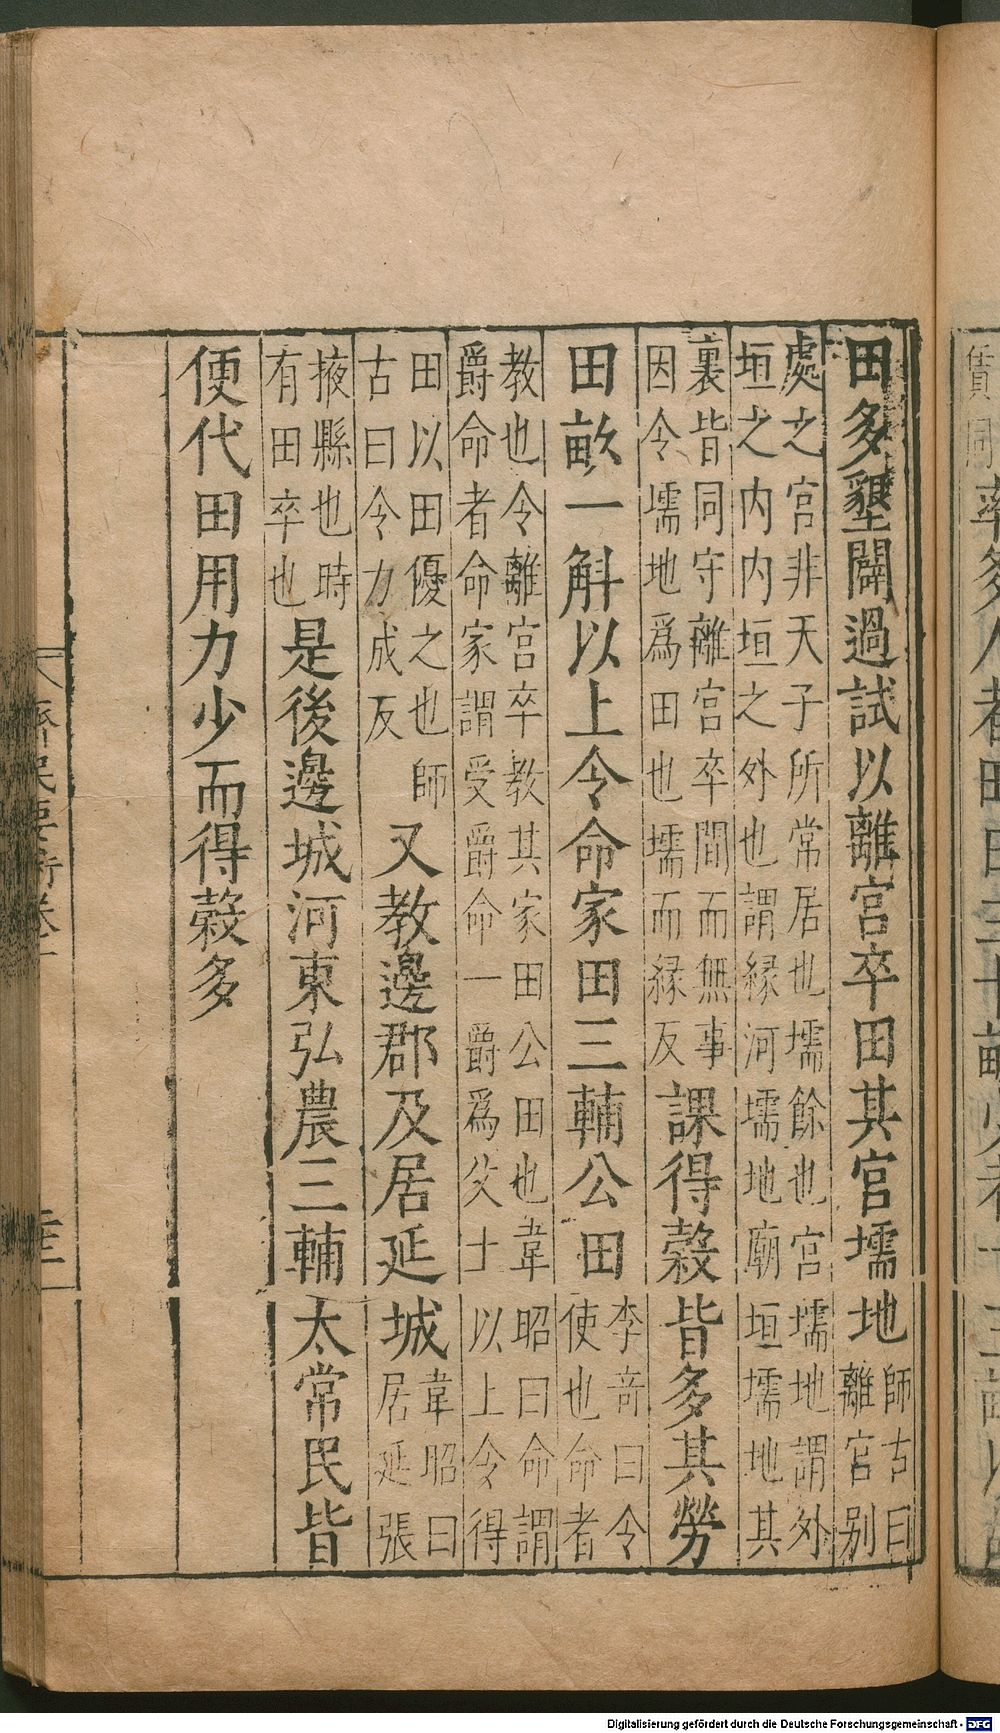 田多墾闢過試以離宮卒田其宮壖地師古曰離宮别
處之宮非天子所常居也壖餘也宮壖地謂外垣之内内垣之外也謂縁河壖地廟垣壖地其
裏皆同守離宮卒間而無事因令壖地爲田也壖而縁反課得穀皆多其勞
田畝一斛以上令命家田三輔公田李竒曰令使也命者
教也令離宮卒教其家田公田也韋昭曰命謂爵命者命家謂受爵命一爵爲父士以上令得
田以田優之也師古曰令力成反又教邊郡及居延城韋昭曰居延張
掖縣也時有田卒也是後邊城河東弘農三輔太常民皆
便代田用力少而得穀多
齊民要術卷一
Digitalisierung gefördert durch die Deutsche Forschungsgemeinschaft - DFG